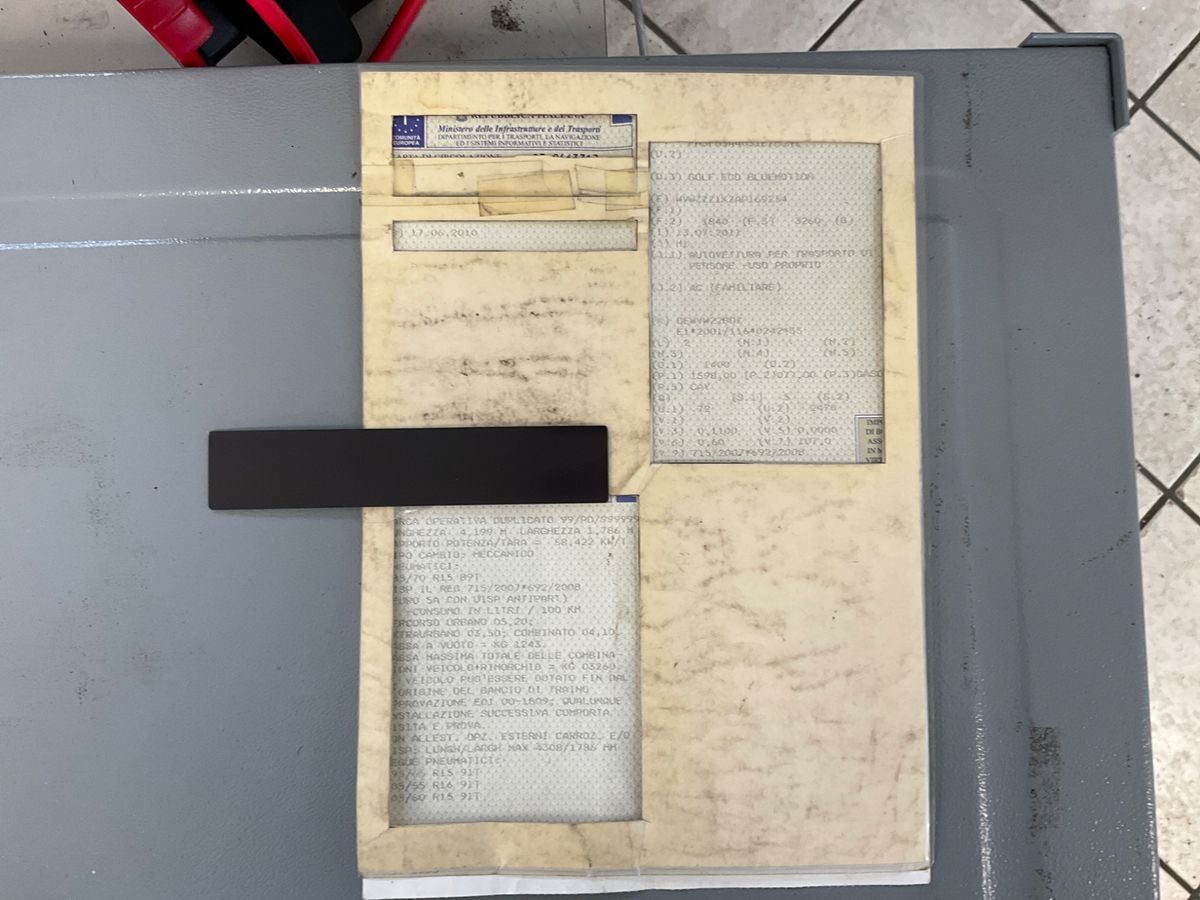 REPUBBLICA ITALIANA
COMUNITÀ
EUROPEA
Ministero delle Infrastrutture e dei Trasporti
DIPARTIMENTO PER I TRASPORTI, LA NAVIGAZIONE
ED I SISTEMI INFORMATIVI E STATISTICI
ARTA DI CIRCOLAZIONE
) 17.06.2010
ARCA OPERATIVA DUPLICATO 99/PD/999999
NGHEZZA 4,199 M LARGHEZZA 1,786 M
APPORTO POTENZA/TARA = 58,422 KW/T
IPO CAMBIO: MECCANICO
NEUMATICI:
95/70 R15 89T
ISP IL REG 715/2007*692/2008
EURO 5A CON DISP ANTIPART)
-CONSUMO IN LITRI / 100 KM
ERCORSO URBANO 05,20;
XTRAURBANO 03,50; COMBINATO 04,10
ASSA A VUOTO = KG 1243.
ASSA MASSIMA TOTALE DELLE COMBINA
IONI VEICOLO+RIMORCHIO = KG 03260
VEICOLO PUO'ESSERE DOTATO FIN DAL
'ORIGINE DEL GANCIO DI TRAINO
PPROVAZIONE E01 00-1809; QUALUNQUE
NSTALLAZIONE SUCCESSIVA COMPORTA
ISITA E PROVA.
ON ALLEST. OPZ. ESTERNI CARROZ. E/O
ISP: LUNGH/LARGH MAX 4308/1786 MM
EGUE PNEUMATICI:
95/65 R15 91T
05/55 R16 91T
05/60 R15 91T
(D.2)
(D.3) GOLF ECO BLUEMOTION
(E)
(F.1)
(F.2) 1840 (F.3) 3260 (G)
(I) 13.07.2011
(J) M1
(J.1) AUTOVETTURA PER TRASPORTO DI
PERSONE -USO PROPRIO
(J.2) AC (FAMILIARE)
(K)
E1*2001/116*0242*55
(L) 2 (N.1) (N.2)
(N.3) (N.4) (N.5)
(O.1) 1400 (O.2)
(P.1) 1598,00 (P.2)077,00 (P.3)GASO
(P.5) CAY
(Q) (S.1) 5 (S.2)
(U.1) 72 (U.2) 2476
(V.1) (V.2)
(V.3) 0,1100 (V.5) 0,0000
(V.6) 0,60 (V.7) 107,0
(V.9) 715/2007*692/2008
IMPO
DI B
ASS
IN M
VIRT